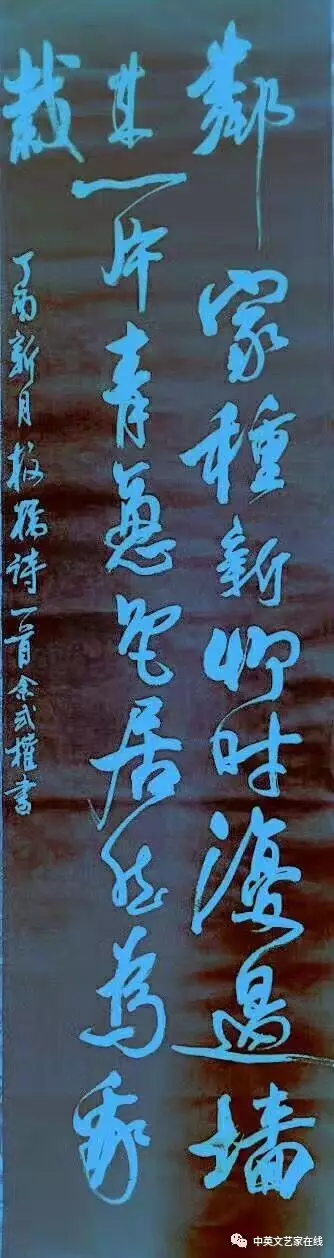 鄰家種新竹时復過墙
来一片青葱色居然為我
栽
丁酉新月板橋詩一首余武權書
中英文艺家在线